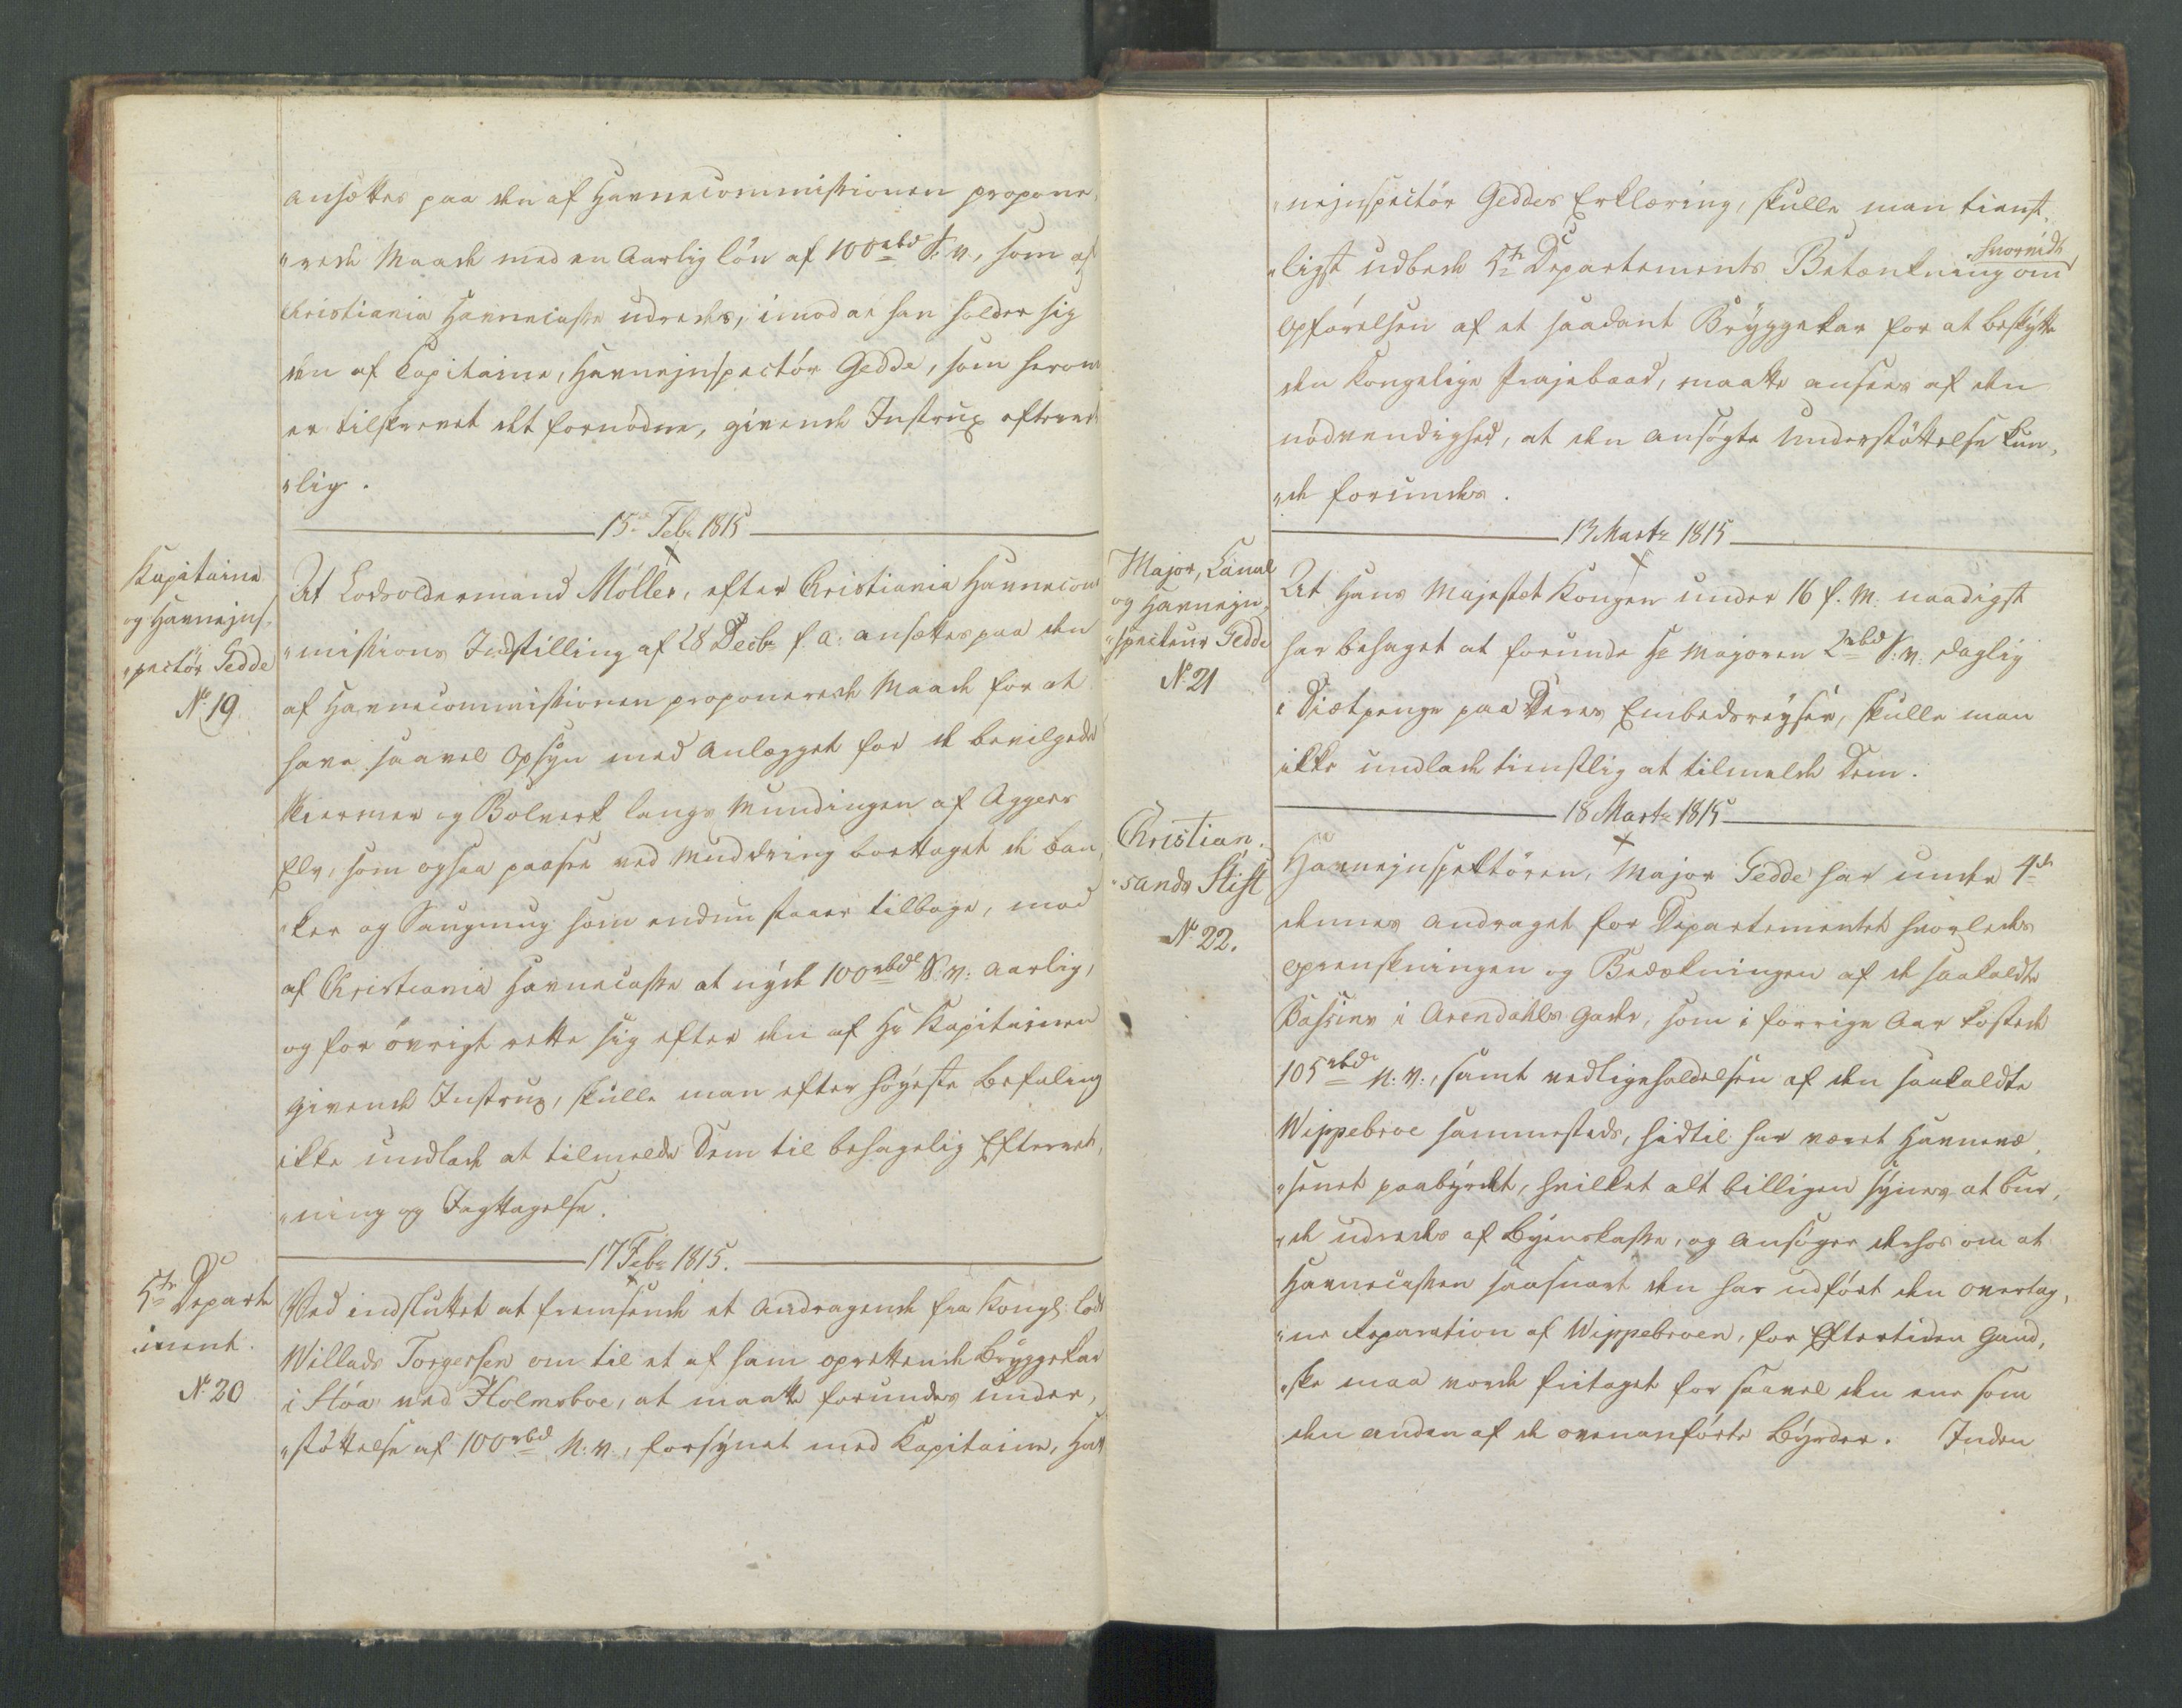 ansættes paa den af Havnecommissionen propone,
"rede Maade med en Aarlig løn af 100 rbd S: V., som af
Christiania Havnecasse udredes, imod at han holder sig
den af Capitaine, Havneinspectör Gedde, som herom
er tilskrevet det fornödne, givende Instrux efterret
"lig.
15de Febr 1815
Kapitaine
og Havneins,
"pectör Gedde
No 19.
At Lodsoldermand Möller, efter Christiania Havnecom
"missions Indstilling af 28 Decbr f. A. ansættes paa den
af Havnecommissionen proponerede Maade for at
have saavel Opsyn med Anlægget for de bevilgede
Skiermer og Bolverk langs Mundingen af Aggers
Elv, som ogsaa paasee ved Muddring borttaget de Ban,
"ker og Saugmug som endnu staaer tilbage, mod
af Christiania Havnecasse at nyde 100 rbdl S. V. Aarlig,
og for övrigt rette sig efter den af Hr Kapitainen
givende Instrux, skulle man efter höyeste Befaling
ikke undlade at tilmelde Dem til behagelig Efterret,
"ning og Iagttagelse.
17 Febr 1815.
5te Departe
ment.
No 20
Ved indsluttet at fremsende et Andragende fra Kongl: Lods
Willads Torgersen om til et af ham oprettende Bryggekar
i Stöa ved Holmsboe, at maatte forundes Under,
"støttelse af 100 rbd N. V., forsynet med Kapitaine, Hav
"neinspectör Geddes Erklæring, skulle man tienst,
"ligst udbede 5te Departements Betænkning hvorvidt om
Opförelsen af et saadant Bryggekar for at beskytte
den Kongelige Prajebaad, maatte ansees af den
nödvendighed, at den ansögte Understöttelse kun,
"de forundes.
13 Marts 1815
Major, Canal
og Havnein,
"specteur Gedde
No 21
At Hans Majestet Kongen under 16 f. M. naadigst
har behaget at forunde Hr Majoren 2 rbd S. V. daglig
i Diætpenge paa Deres Embedsreyser, skulle man
ikke undlade tienstlig at tilmelde Dem.
18 Marts 1815
Christian,
"sands Stift
No 22.
Havneinspektören, Major Gedde har under 4de
dennes andraget for Departementet hvorledes
oprenskningen og Bedækningen af de saakaldte
Bassiner i Arendahls Gader, som i forrige Aar kostede
105 rbd N. V., samt vedligeholdelsen af den saakaldte
Wippebroe sammesteds, hidtil har været Havnevæ,
"senet paabyrdet, hvilket alt billigen synes at bur,
"de udredes af Byens Kasse, og ansöger derhos om at
Havnecassen saasnart den har udfört den overtag,
"ne Reparation af Wippebroen, for Eftertiden Gand,
"ske maa vorde fritaget for saavel den ene som
den anden af de ovenanförte Byrder. Inden